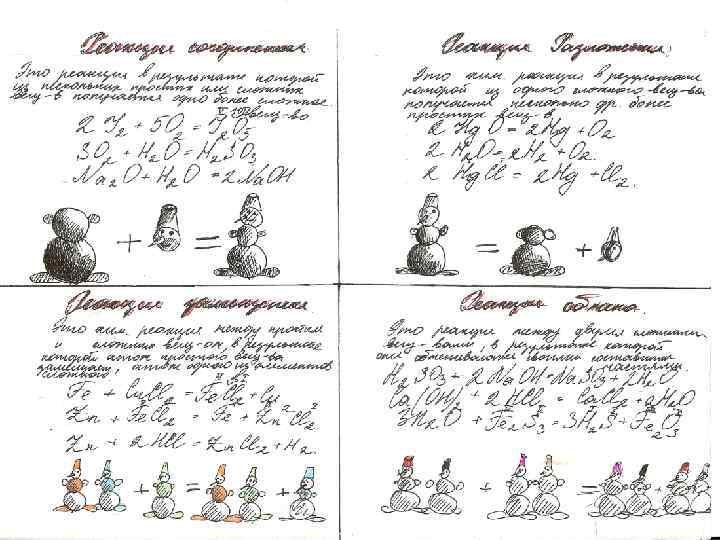 Реакция соединения.
Это реакция в результате которой
из нескольких простых или сложных
вещ-в получается одно более сложное
вещ-во
2I2 + 5O2 = I2O5
SO2 + H2O = H2SO3
Na2O + H2O = 2NaOH
+ =
Реакция Разложения.
Это хим. реакция в результате
которой из одного сложного вещ-ва
получается несколько др. более
простых вещ-в.
2 HgO = 2Hg + O2
2 H2O = 2H2 + O2.
2 HgCl = 2Hg + Cl2.
= +
Реакция замещения
Это хим. реакция между простым
и сложным вещ-ом, в результате
которой атом простого вещ-ва
замещает, атом одного из элементов
сложного.
Fe + CuCl2 = FeCl2 + Cu
Zn + FeCl2 = Fe + ZnCl2
Zn + 2HCl = ZnCl2 + H2.
+ = +
Реакция обмена.
Это реакция между двумя сложными
вещ-вами, в результате которой
они обмениваются своими составными
частями.
H2SO3 + 2NaOH = Na2SO3 + 2H2O
Ca(OH)2 + 2HCl = CaCl2 + 2H2O
3H2O + Fe2S3 = 3H2S + Fe2O3
+ = +